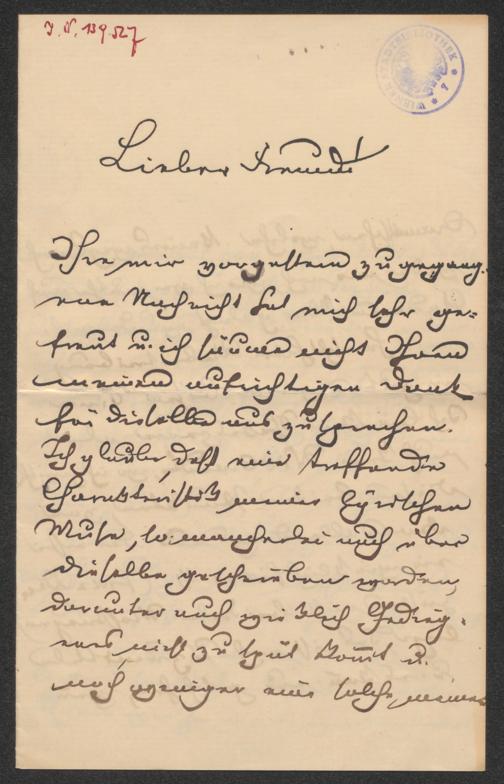 J. N. 139527
WIENER STADTBIBLIOTHEK * 7 *
Lieber Freund!
Ihre mir vorgestern zugegang-
ene Nachricht hat mich sehr ge-
freut u. ich säume nicht Ihnen
meinen aufrichtigen Dank
für dieselbe auszusprechen.
Ich glaube, daß eine treffende
Charakteristik meiner lyrischen
Muse, so mancherlei auch über
dieselbe geschrieben worden,
darunter auch wirklich Gedieg-
enes, nicht zu spät kommt u.
noch weniger eine solche meines